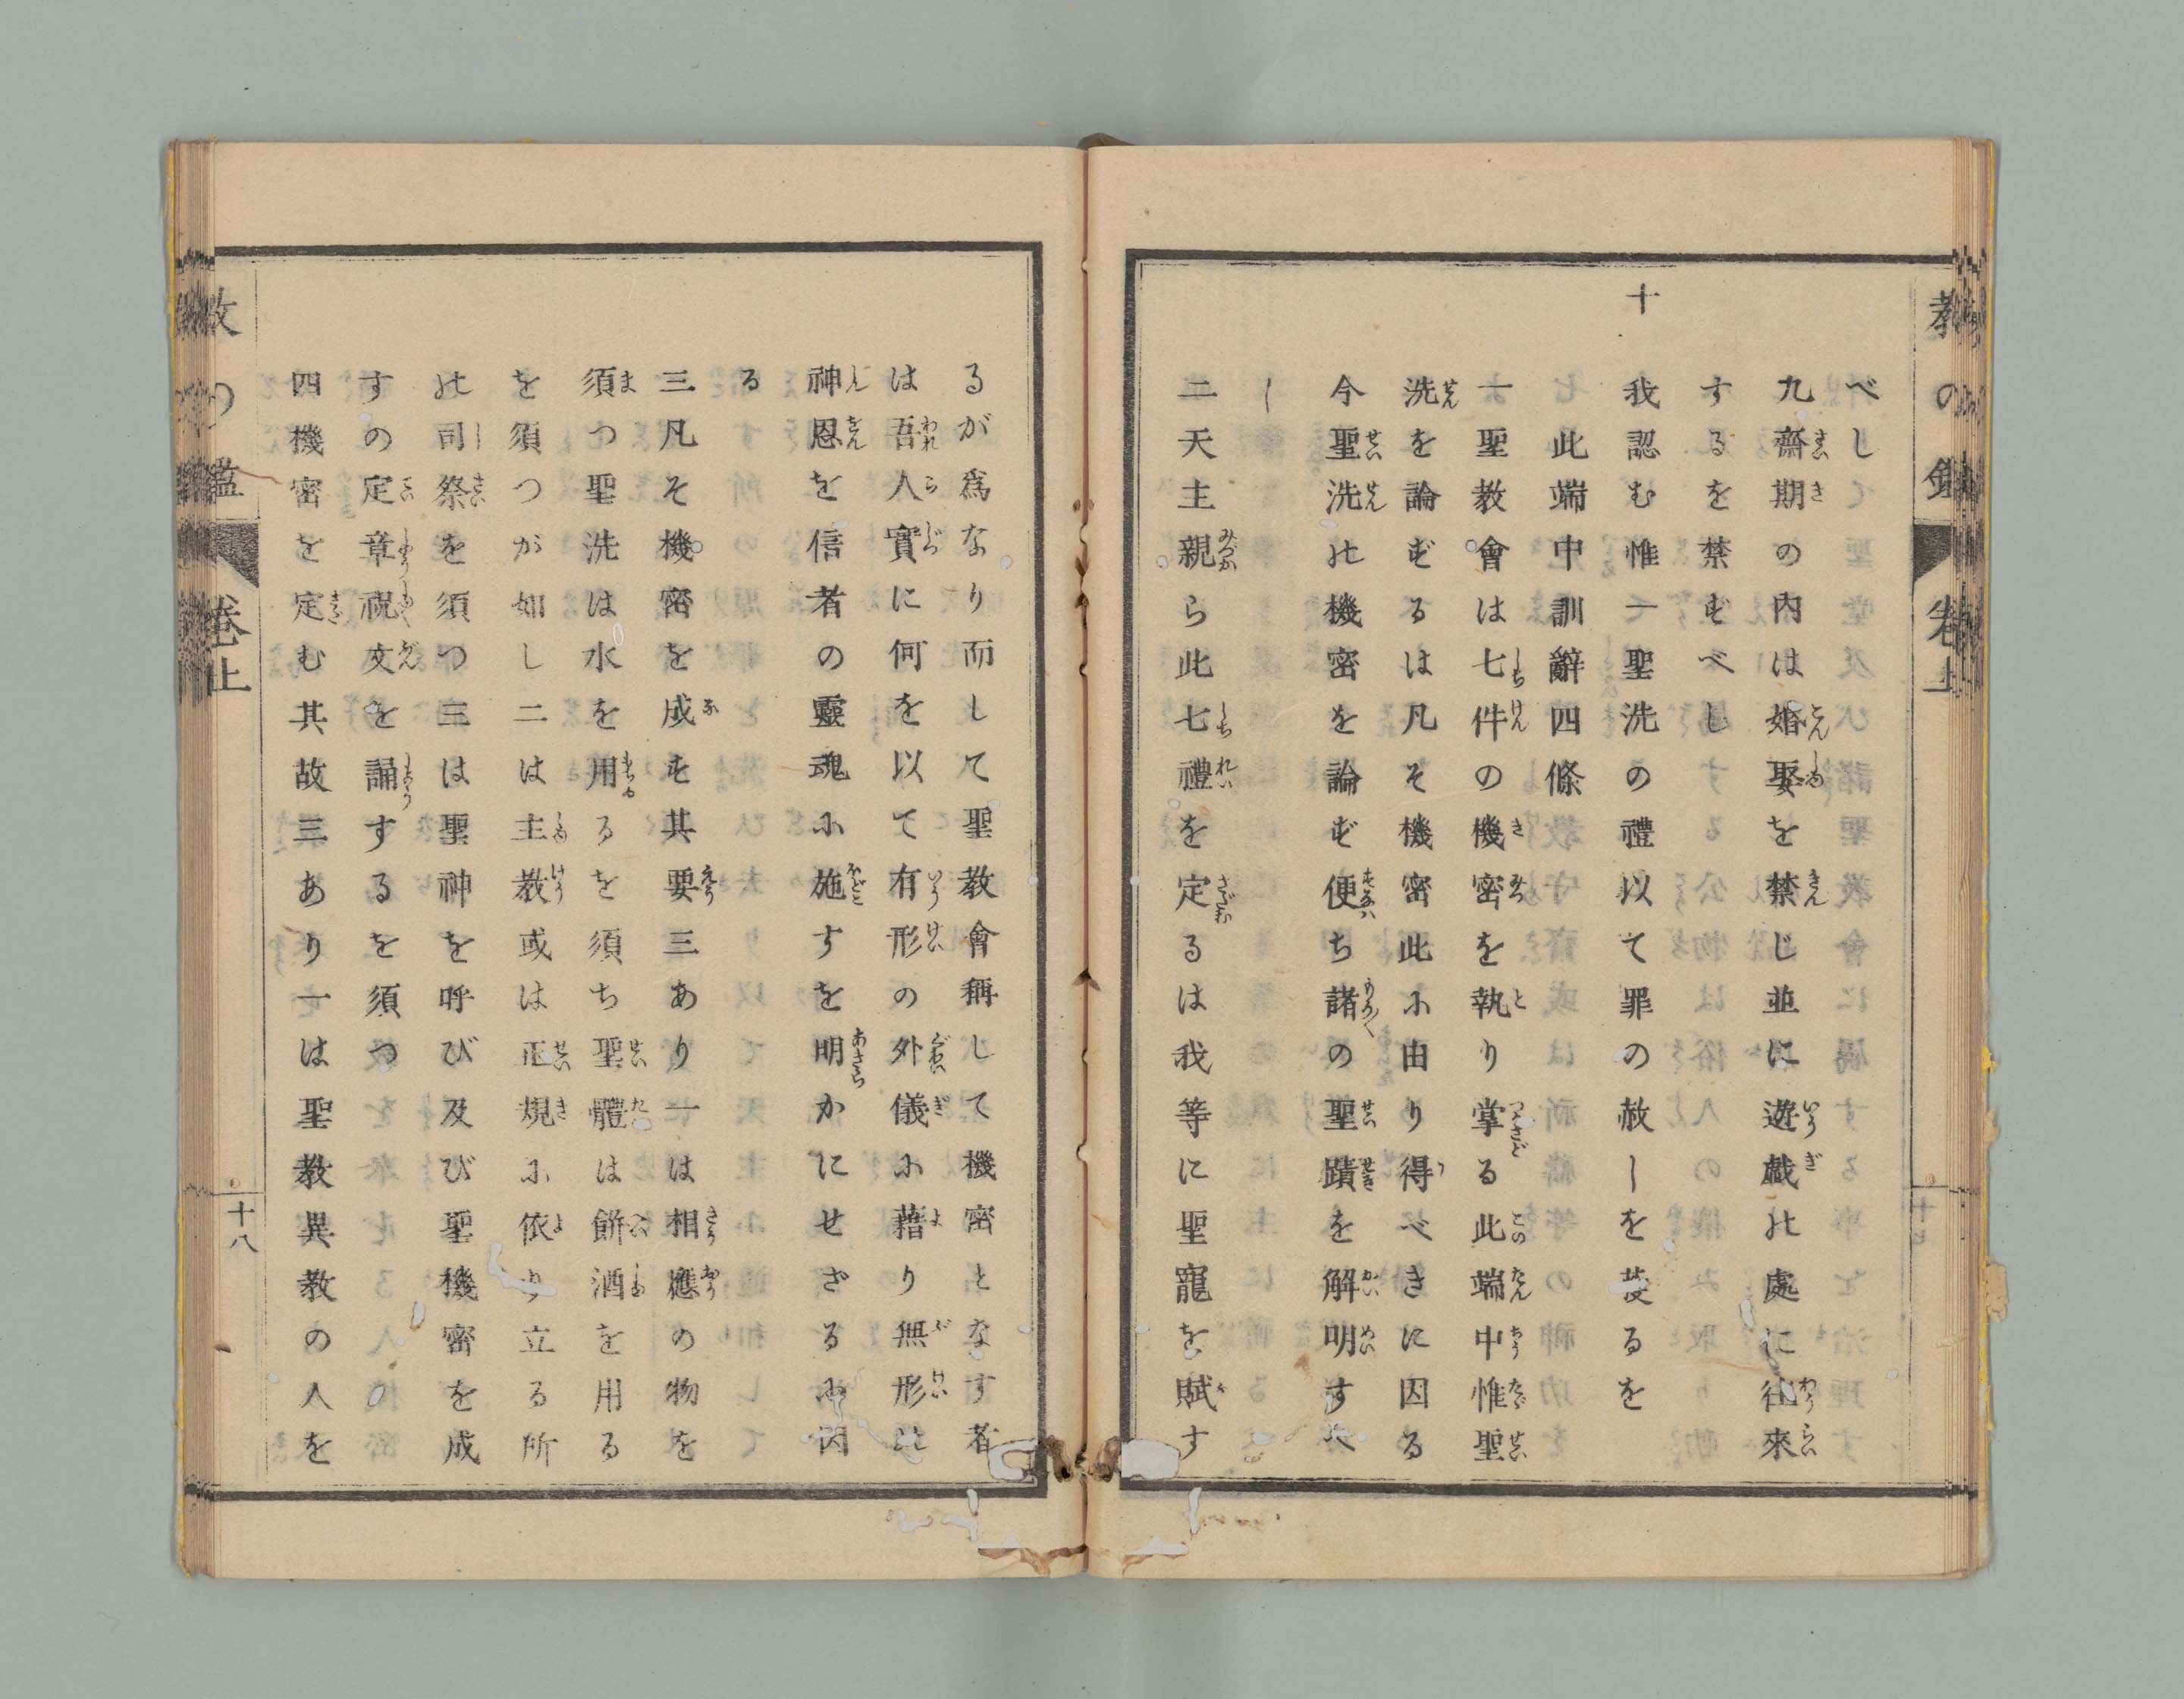 べし
九齋期の內は婚娶を禁じ並に遊戯の處に徃來
するを禁ずべし
十
我認む惟一聖洗の禮以て罪の赦しを受るを
此端中訓辭四條
一聖教會は七件の機密を執り掌る此端中惟聖
洗を論ずるは凡そ機密此に由り得べきに因る
今聖洗の機密を論ず便ち諸の聖蹟を解明すべ
し
二天主親ら此七禮を定るは我等に聖寵を賦す
るが爲なり而して聖教會稱して機密となす者
は吾人實に何を以て有形の外儀に藉り無形の
神恩を信者の靈魂に施すを明かにせざるに因
る
三凡そ機密を成す其要三あり一は相應の物を
須つ聖洗は水を用るを須ち聖體は餅酒を用る
を須つが如し二は主教或は正規に依り立る所
の司祭を須つ三は聖神を呼び及び聖機密を成
すの定章祝文を誦するを須つ
四機密を定む其故三あり一は聖教異教の人を
教の鑑
卷上
十八